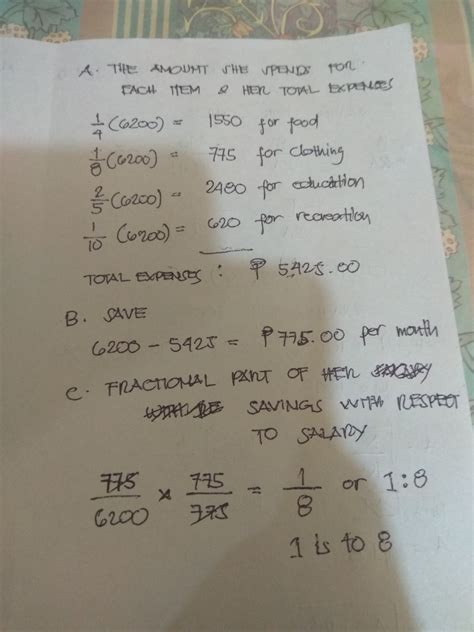 A. THE AMOUNT SHE SPENDS FOR
EACH ITEM & HER TOTAL EXPENSES
1/4 (6200) = 1550 for food
1/8 (6200) = 775 for clothing
2/5 (6200) = 2480 for education
1/10 (6200) = 620 for recreation
TOTAL EXPENSES : ₱ 5,425.00
B. SAVE
6200 - 5425 = ₱ 775.00 per month
C. FRACTIONAL PART OF HER
SAVINGS WITH RESPECT
TO SALARY
775/6200 × 775/775 = 1/8 or 1:8
1 is to 8